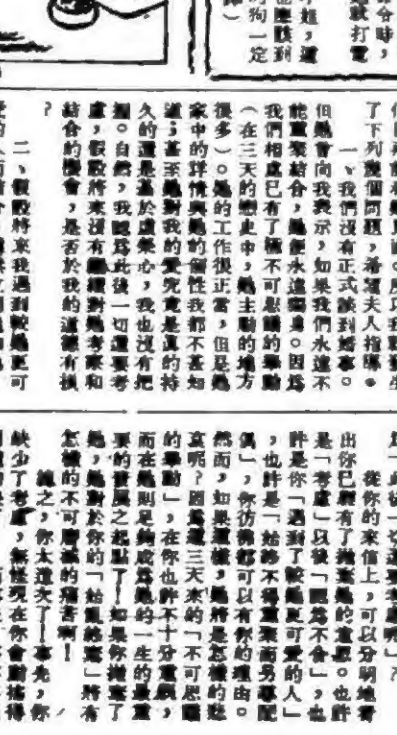 小姐，還
應該到
的狗一定
）
了下列幾個問題，希望夫人指導。
一、我們沒有正式談到婚事。
但她曾向我表示，如果我們永遠不
能重聚結合，她便永遠獨身。因為
我們相處已有了種不可思議的舉動
（在三天的戀史中，她主動的地方
很多）。她的工作很正當，但是她
家中的詳情與她的個性我都不甚知
道；甚至她對我的愛究竟是真的持
久的還是基於虛榮心，我也沒有把
握。自然，我認為此後一切還要考
慮，假設將來沒有繼續對她考察和
結合的機會，是否於我的道德有損
？
二、假設將來我遇到較她更可
為「此後一切還要考慮呢」？
從你的來信上，可以分明地看
出你已經有了拋棄她的意思。也許
是「考慮」以後「認為不合」，也
許是你「遇到了較她更可愛的人」
，也許是「始終不得重聚而另尋配
偶」，你彷彿都可以有你的理由。
然而，如果這樣，她將是怎樣的悲
哀呢？因為這三天來的「不可思議
的舉動」，在你也許不十分重視，
而在她則足夠成為她的一生的最重
要的發展之起點了！如果你拋棄了
她，她對於你的「始亂終棄」將有
怎樣的不可磨滅的痛苦啊！
總之，你太　欠了！事先，你
缺少了考慮，無怪現在你會動搖得